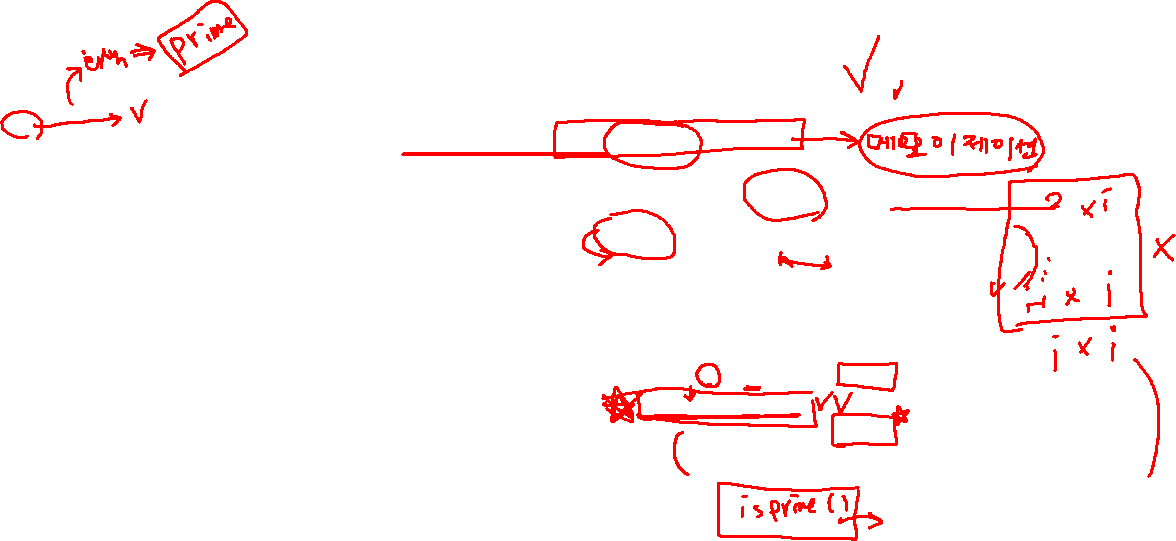 prime
메모이제이션
2 x i
x i
i x i
isprime()